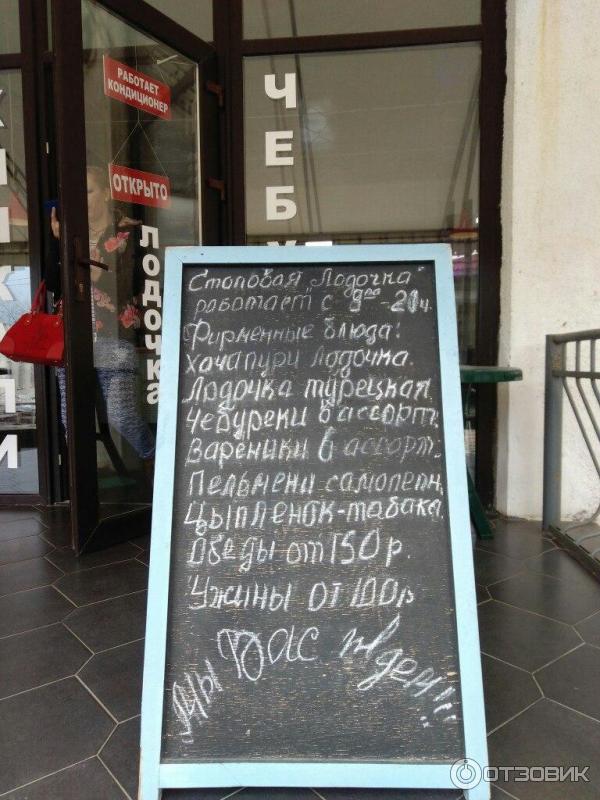 РАБОТАЕТ
КОНДИЦИОНЕР
ОТКРЫТО
ЛОДОЧКА
ЧЕБУ
Столовая Лодочка"
работает с 9⁰⁰-21ч.
Фирменные блюда!
Хачапури лодочка.
Лодочка турецкая.
Чебуреки в ассорт.
Вареники в ассорт.
Пельмени самолепн.
Цыпленок-табака.
Обеды от 150 р.
Ужины от 100р
Мы Вас ждем!!!
ОТЗОВИК